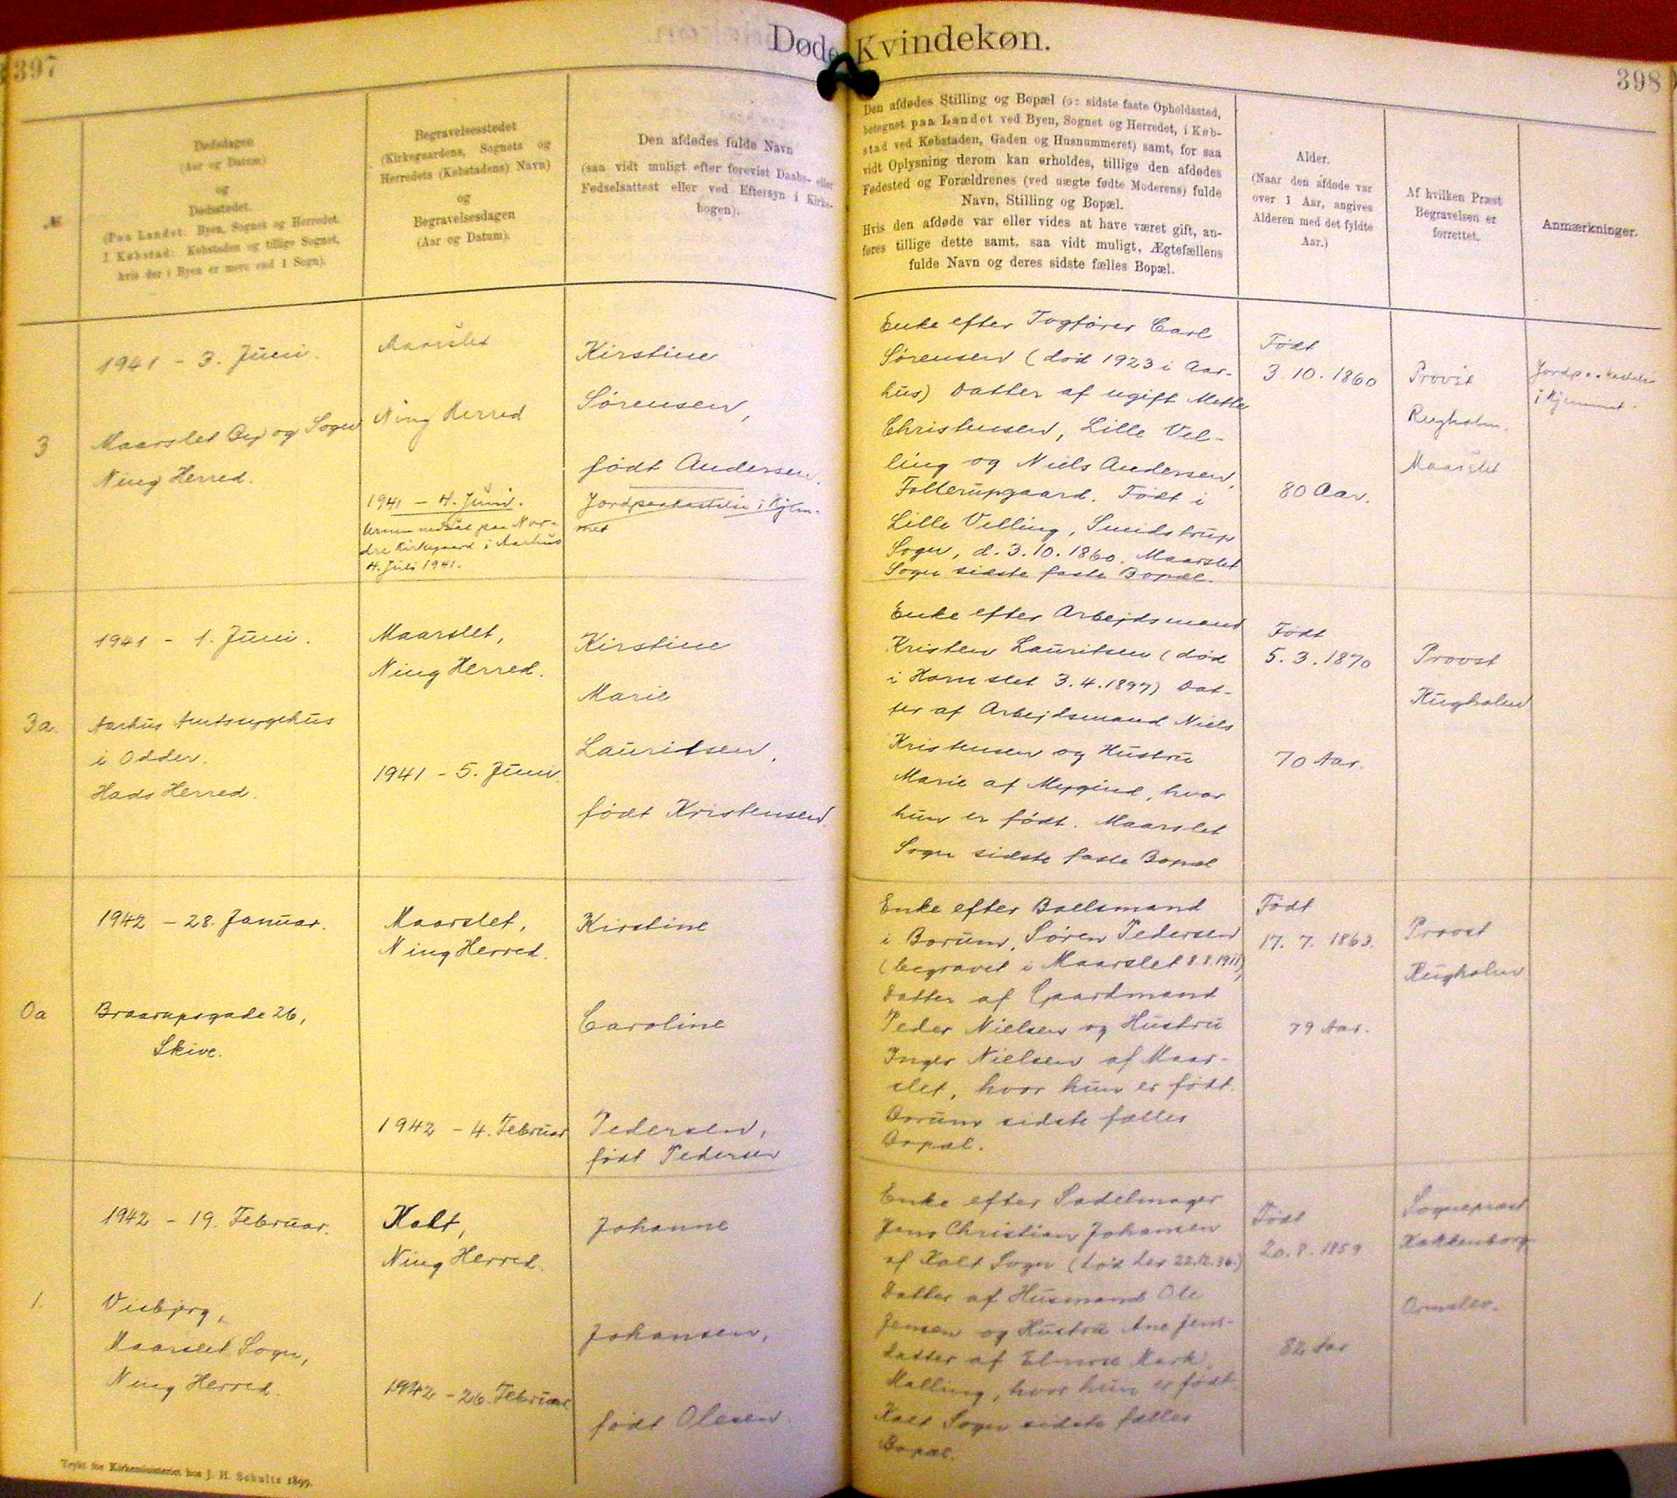 397
Døde Kvindekøn.
398
№
Dødsdagen
(Aar og Datum)
og
Dødsstedet.
(Paa Landet: Byen, Sognet og Herredet.
I Købstad: Købstaden og tillige Sognet,
hvis der i Byen er mere end 1 Sogn).
Begravelsesstedet
(Kirkegaardens, Sognets og
Herredets (Købstadens) Navn)
og
Begravelsesdagen
(Aar og Datum).
Den afdødes fulde Navn
(saa vidt muligt efter forevist Daabs- eller
Fødselsattest eller ved Eftersyn i Kirke-
bogen).
Den afdødes Stilling og Bopæl (ɔ: sidste faste Opholdssted,
betegnet paa Landet ved Byen, Sognet og Herredet, i Køb-
stad ved Købstaden, Gaden og Husnummeret) samt, for saa
vidt Oplysning derom kan erholdes, tillige den afdødes
Fødested og Forældrenes (ved uægte fødte Moderens) fulde
Navn, Stilling og Bopæl.
Hvis den afdøde var eller vides at have været gift, an-
føres tillige dette samt, saa vidt muligt, Ægtefællens
fulde Navn og deres sidste fælles Bopæl.
Alder.
(Naar den afdøde var
over 1 Aar, angives
Alderen med det fyldte
Aar.)
Af hvilken Præst
Begravelsen er
forrettet.
Anmærkninger.
3
1941 - 3. Juni.
Maarslet By og Sogn
Ning Herred.
Maarslet
Ning Herred
1941 - 4. Juni.
Urnen nedsat paa Nor-
dre Kirkegaard i Aarhus
4. Juli 1941.
Kirstine
Sørensen,
født Andersen.
Jordpaakastelse i Hjem-
met
Enke efter Togfører Carl
Sørensen (død 1923 i Aar-
hus) Datter af ugift Mette
Christensen, Lille Vel-
ling og Niels Andersen,
Følterupgaard. Født i
Lille Velling, Smidstrup
Sogn, d. 3.10.1860. Maarslet
Sogn sidste faste Bopæl.
Født
3.10.1860
80 Aar.
Provst
Rugholm.
Maarslet
Jordpaakastelse
i Hjemmet.
3a.
1941 - 1. Juni.
Aarhus Amtssygehus
i Odder.
Hads Herred.
Maarslet,
Ning Herred.
1941 - 5. Juni.
Kirstine
Marie
Lauritsen,
født Kristensen.
Enke efter Arbejdsmand
Kristen Lauritsen (død
i Hornslet 3.4.1897) Dat-
ter af Arbejdsmand Niels
Kristensen og Hustru
Marie af Mygind, hvor
hun er født. Maarslet
Sogn sidste faste Bopæl
Født
5.3.1870
70 Aar.
Provst
Rugholm
0a
1942 - 28. Januar.
Braarupsgade 26,
Skive.
Maarslet,
Ning Herred.
1942 - 4. Februar
Kirstine
Caroline
Pedersen,
født Pedersen
Enke efter Boelsmand
i Borum, Søren Pedersen
(begravet i Maarslet 8.8.1911),
Datter af Gaardmand
Peder Nielsen og Hustru
Inger Nielsen af Maar-
slet, hvor hun er født.
Borum sidste fælles
Bopæl.
Født
17.7.1863.
79 Aar.
Provst
Rugholm
1.
1942 - 19. Februar.
Visbjerg,
Maarslet Sogn,
Ning Herred.
Kolt,
Ning Herred.
1942 - 26. Februar
Johanne
Johansen,
født Olesen.
Enke efter Sadelmager
Jens Christian Johansen
af Kolt Sogn (død der 22.12.36.)
Datter af Husmand Ole
Jensen og Hustru Ane Jens-
datter af Elmose Mark,
Malling, hvor hun er født.
Kolt Sogn sidste fælles
Bopæl.
Født
20.8.1859
82 Aar
Sognepræst
Ormslev.
Trykt for Kirkeministeriet hos J. H. Schultz 1899.